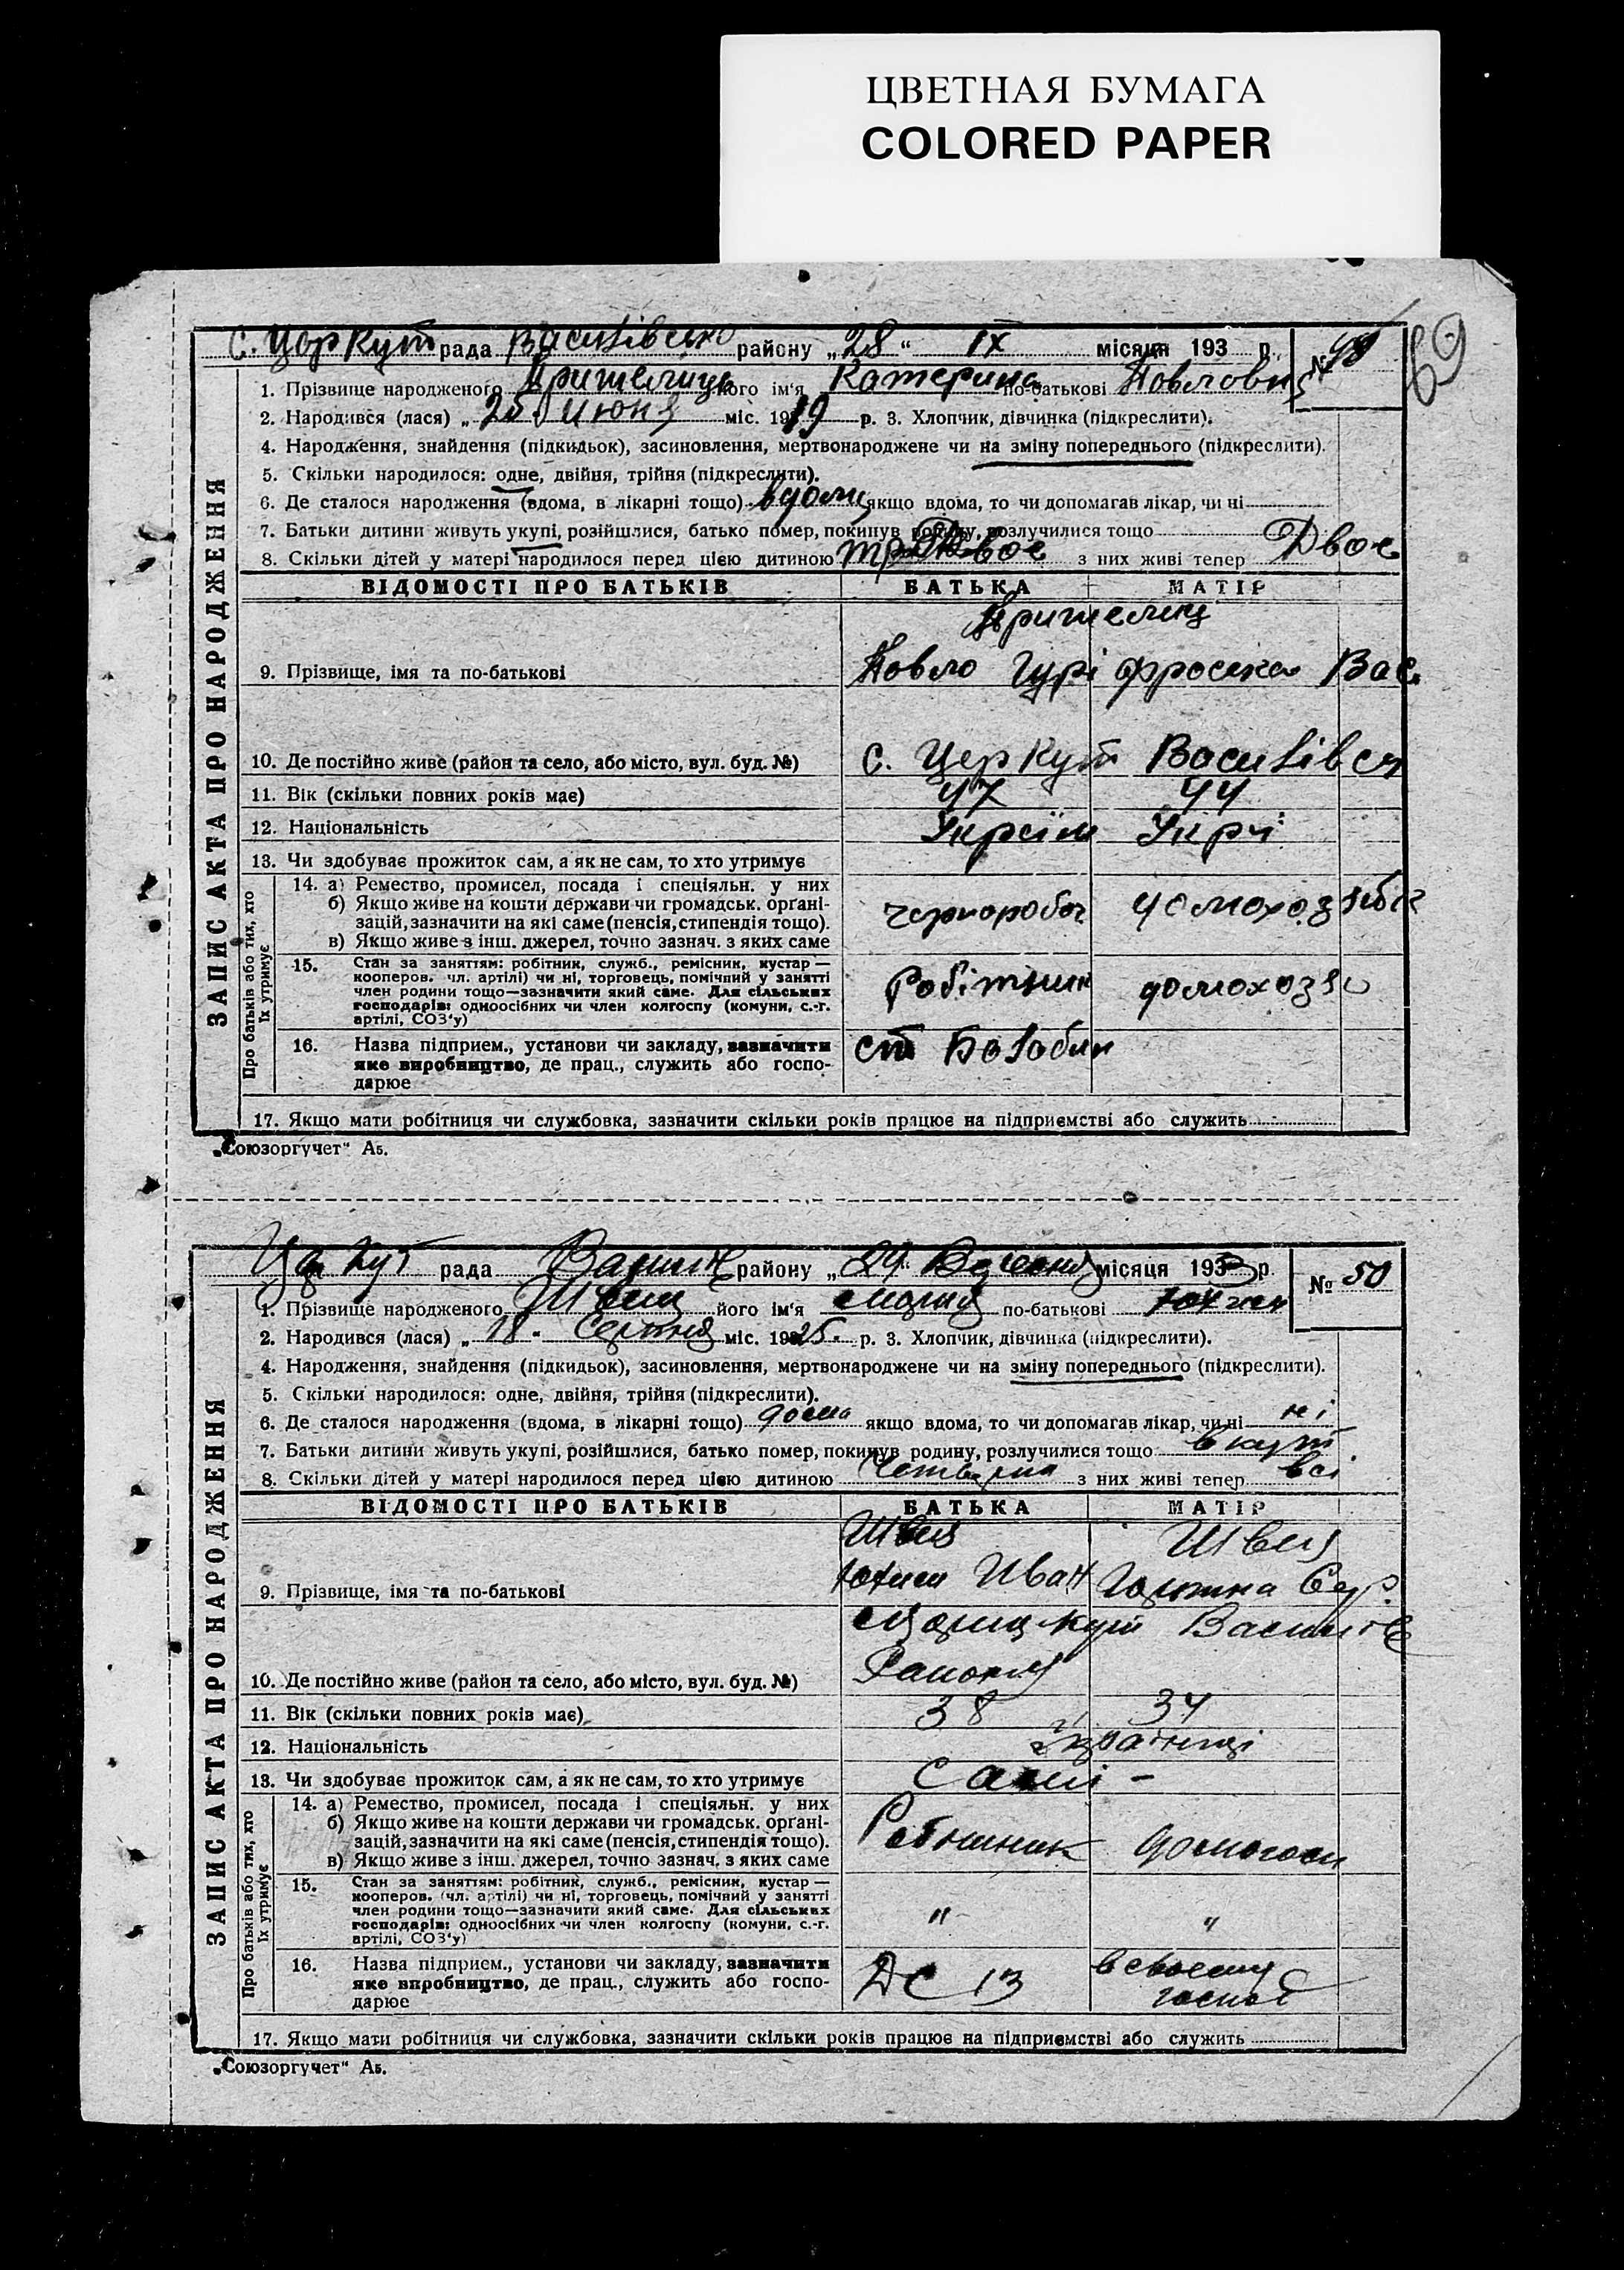 ЦВЕТНАЯ БУМАГА
COLORED PAPER
69
С. Цар Кут рада Василівсько району „28“ IX місяця 193 р. № 49
1. Прізвище народженого Прителиць його ім'я Катерина по-батькові Повловн
2. Народився (лася) „25 Июня міс. 1919 р. 3. Хлопчик, дівчинка (підкреслити).
4. Народження, знайдення (підкидьок), засиновлення, мертвонароджене чи на зміну попереднього (підкреслити).
5. Скільки народилося: одне, двійня, трійня (підкреслити).
6. Де сталося народження (вдома, в лікарні тощо) вдома якщо вдома, то чи допомагав лікар, чи ні
7. Батьки дитини живуть укупі, розійшлися, батько помер, покинув родину, розлучилися тощо
8. Скільки дітей у матері народилося перед цією дитиною Двое з них живі тепер Двое
ВІДОМОСТІ ПРО БАТЬКІВ БАТЬКА МАТІР
Прителиц
9. Прізвище, імя та по-батькові Повло Гурі Фросина Вас.
10. Де постійно живе (район та село, або місто, вул. буд. №) С. Цер Кут Василівсь
11. Вік (скільки повних років має) 47 44
12. Національність Україн Укрї
13. Чи здобуває прожиток сам, а як не сам, то хто утримує
Про батьків або тих, хто їх утримує
14. а) Ремество, промисел, посада і спеціяльн. у них
б) Якщо живе на кошти держави чи громадськ. орґані-
зацій, зазначити на які саме (пенсія, стипендія тощо). чорноробоч
в) Якщо живе з інш. джерел, точно зазнач. з яких саме
15. Стан за заняттям: робітник, служб., ремісник, кустар—
кооперов. чл. артілі) чи ні, торговець, помічний у занятті
член родини тощо—зазначити який саме. Для сільських Робітник домохозяй
господарів: одноосібних чи член колгоспу (комуни, с.-г.
артілі, СОЗ'у)
16. Назва підприєм., установи чи закладу, зазначити ст Болобин
яке виробництво, де прац., служить або госпо-
дарює
17. Якщо мати робітниця чи службовка, зазначити скільки років працює на підприємстві або служить
ЗАПИС АКТА ПРО НАРОДЖЕННЯ
„Союзоргучет“ А5.
Цар Кут рада Василів району „29“ Вересня місяця 1933 р. № 50
1. Прізвище народженого Швец його ім'я Мария по-батькові
2. Народився (лася) „18. Серпня міс. 1925. р. 3. Хлопчик, дівчинка (підкреслити).
4. Народження, знайдення (підкидьок), засиновлення, мертвонароджене чи на зміну попереднього (підкреслити).
5. Скільки народилося: одне, двійня, трійня (підкреслити).
6. Де сталося народження (вдома, в лікарні тощо) дома якщо вдома, то чи допомагав лікар, чи ні ні
7. Батьки дитини живуть укупі, розійшлися, батько помер, покинув родину, розлучилися тощо вкупі
8. Скільки дітей у матері народилося перед цією дитиною Четверта з них живі тепер всі
ВІДОМОСТІ ПРО БАТЬКІВ БАТЬКА МАТІР
Швец Швец
9. Прізвище, імя та по-батькові Юхим Иван Сер.
Цариц кут Василів
10. Де постійно живе (район та село, або місто, вул. буд. №) Району
11. Вік (скільки повних років має) 38 34
12. Національність українці
13. Чи здобуває прожиток сам, а як не сам, то хто утримує Самі -
Про батьків або тих, хто їх утримує
14. а) Ремество, промисел, посада і спеціяльн. у них
б) Якщо живе на кошти держави чи громадськ. орґані-
зацій, зазначити на які саме (пенсія, стипендія тощо). Робітник домогосп
в) Якщо живе з інш. джерел, точно зазнач. з яких саме
15. Стан за заняттям: робітник, служб., ремісник, кустар—
кооперов. (чл. артілі) чи ні, торговець, помічний у занятті
член родини тощо—зазначити який саме. Для сільських " "
господарів: одноосібних чи член колгоспу (комуни, с.-г.
артілі, СОЗ'у)
16. Назва підприєм., установи чи закладу, зазначити ДС 13 в своему
яке виробництво, де прац., служить або госпо- госпо
дарює
17. Якщо мати робітниця чи службовка, зазначити скільки років працює на підприємстві або служить
ЗАПИС АКТА ПРО НАРОДЖЕННЯ
„Союзоргучет“ А5.